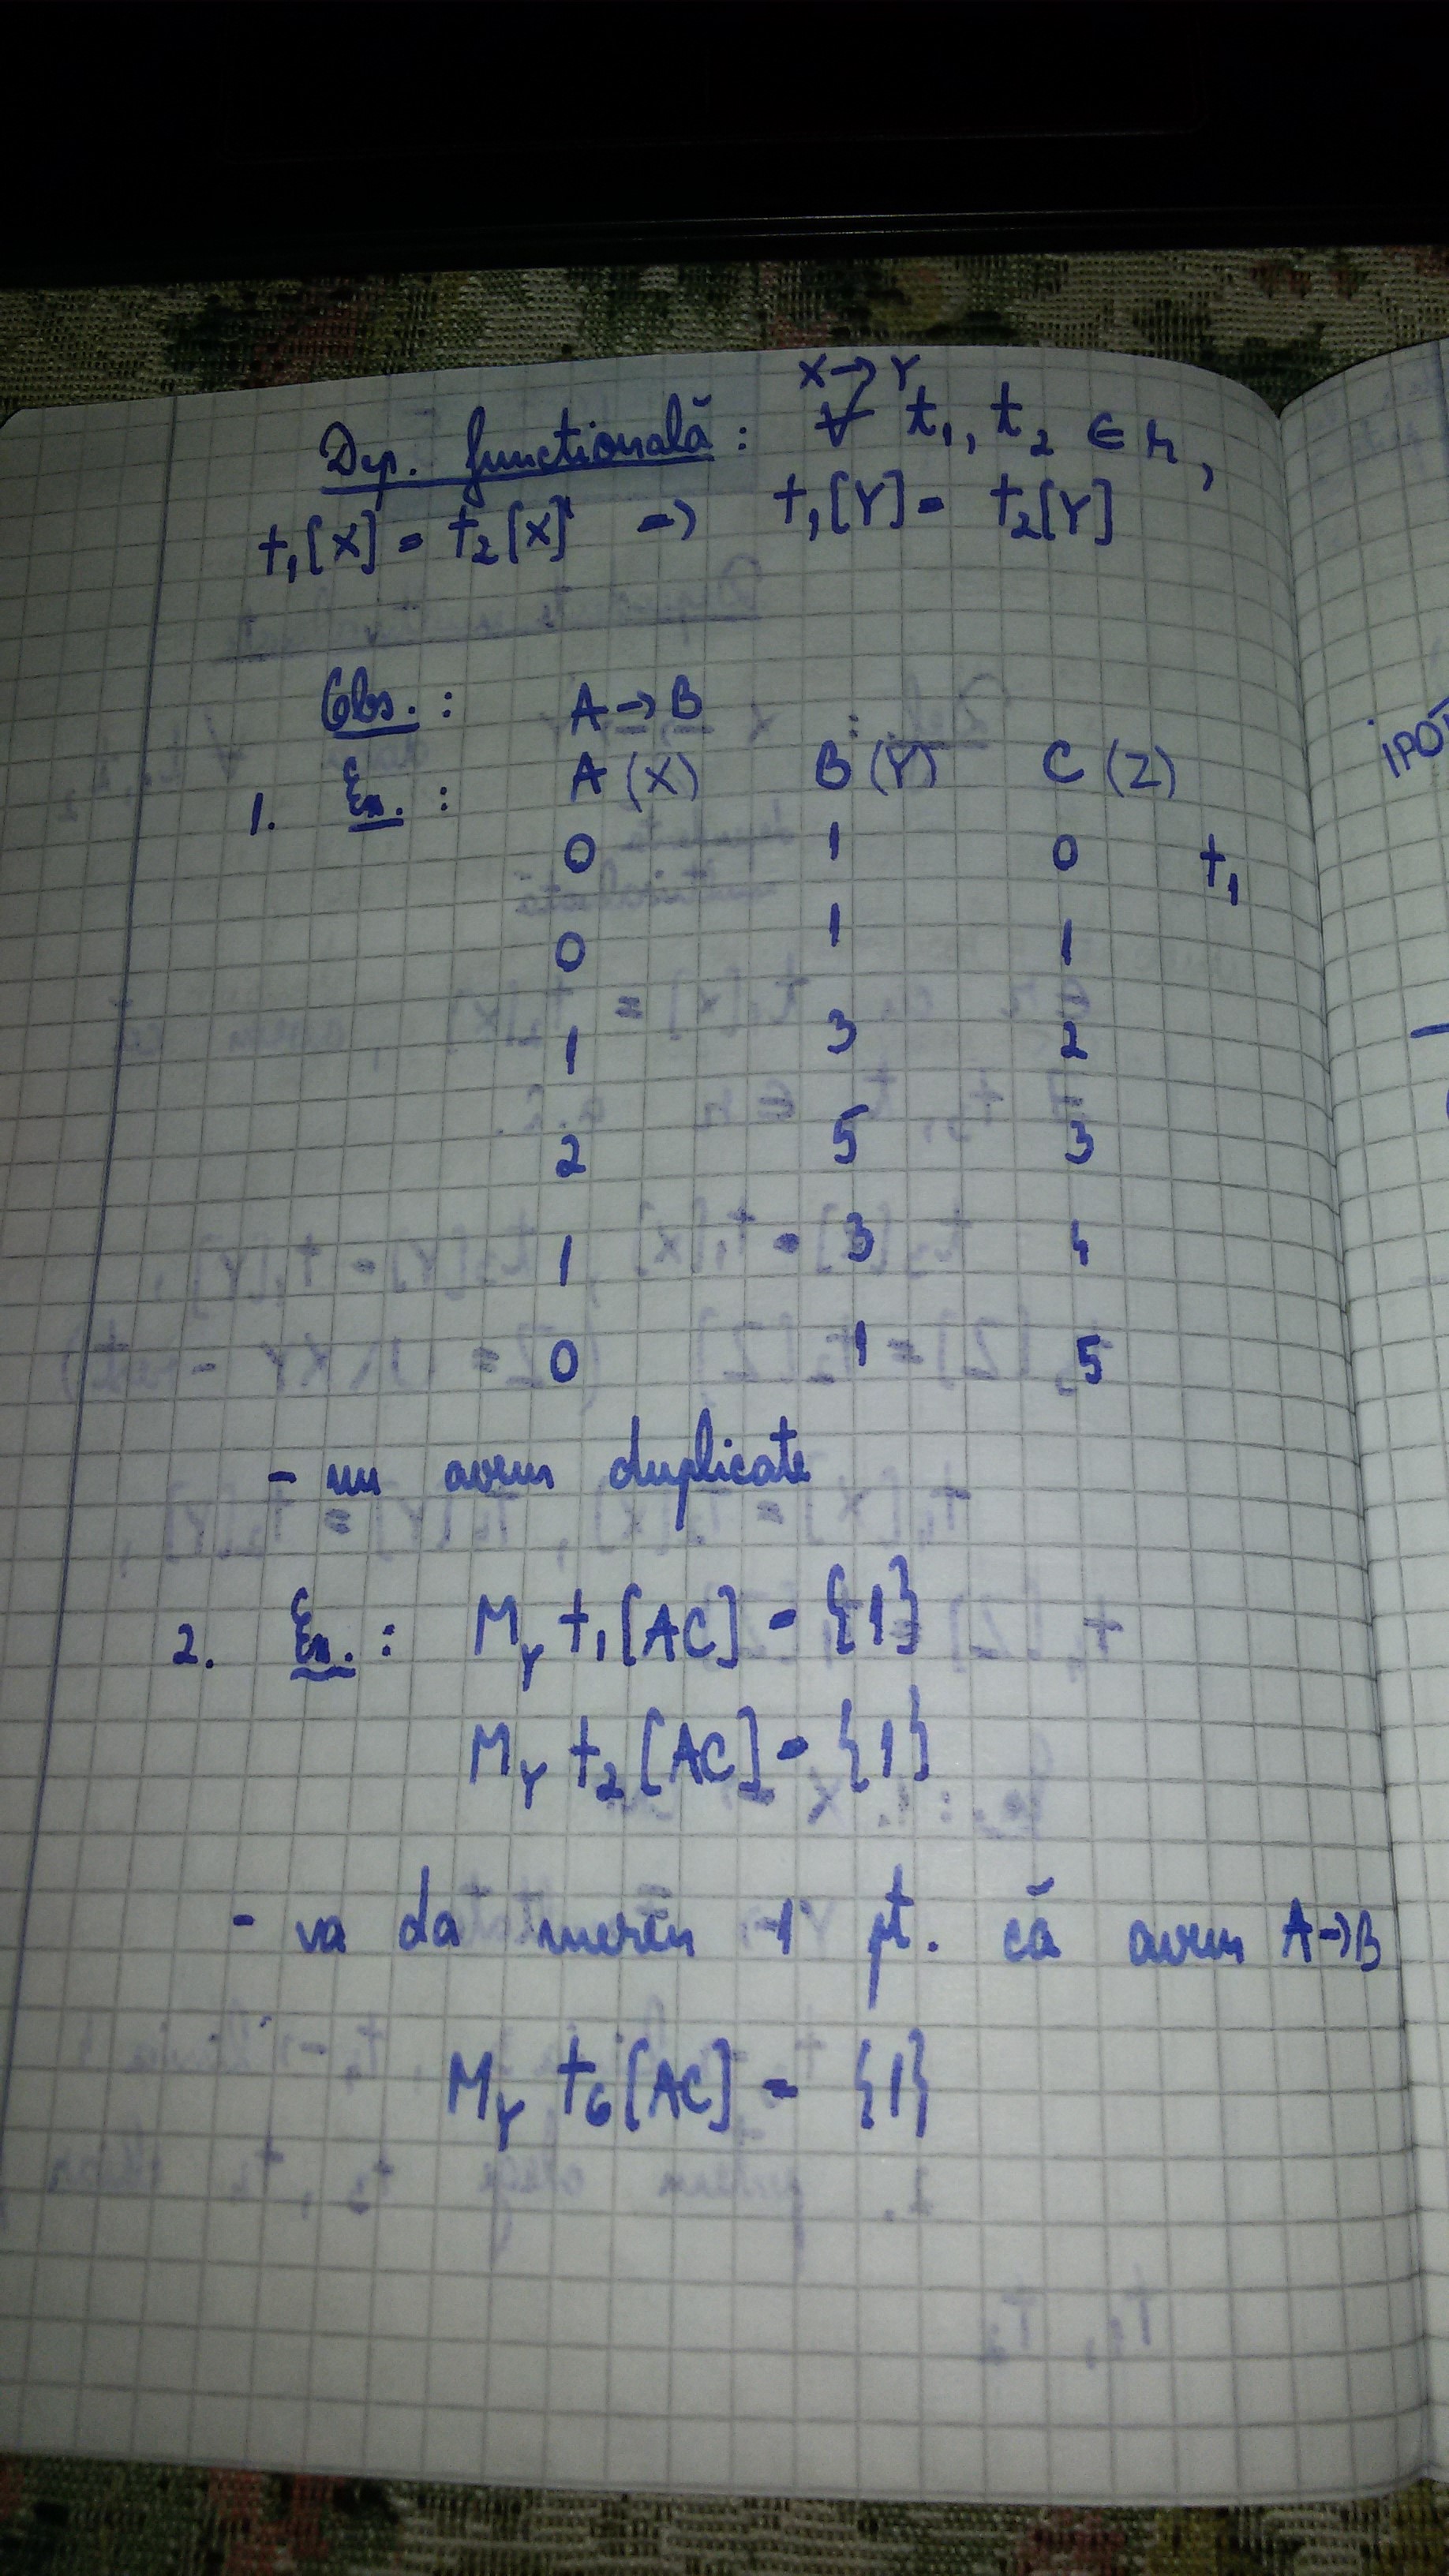 X → Y
Dep. functională : ∀ t₁, t₂ ∈ r,
t₁[X] = t₂[X] => t₁[Y] = t₂[Y]
Obs. : A → B
1. Ex. : A (X) B (Y) C (Z)
0 1 0 t₁
0 1 1
1 3 2
2 5 3
1 3 4
0 1 5
- nu avem duplicate
2. Ex. : M_Y t₁[AC] = {1}
M_Y t₂[AC] = {1}
- va da mereu 1 pt. că avem A → B
M_Y t₆[AC] = {1}